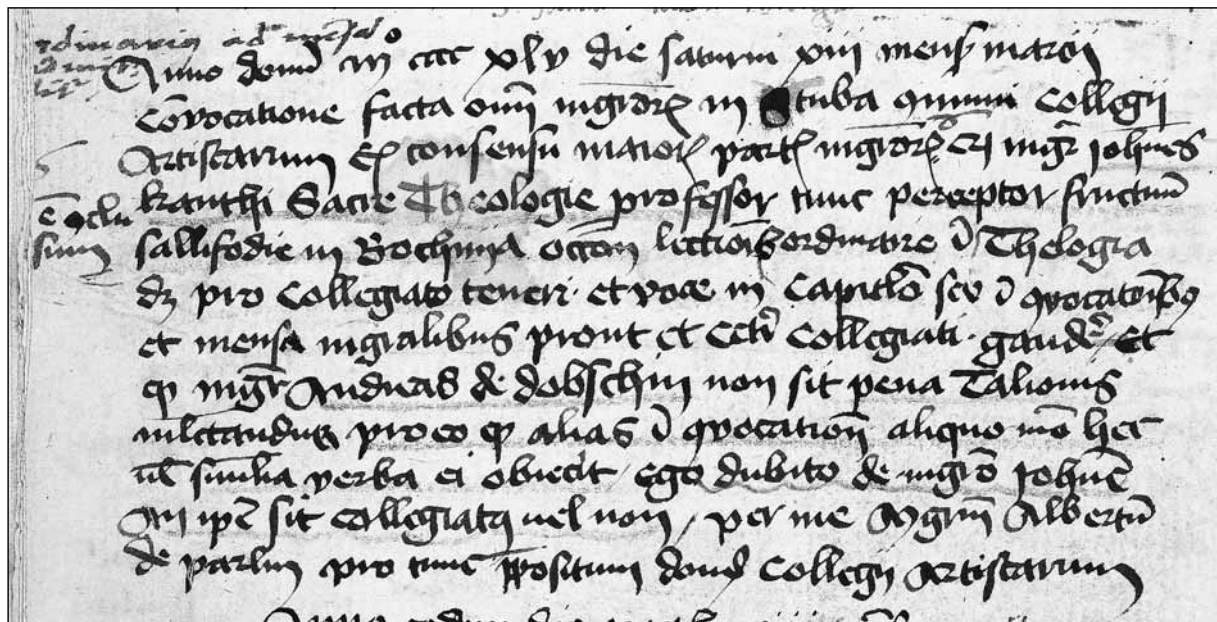 Anno domi mcccc xlv die saturni xiii mens marcii
Convocatione facta omi mgrorꝝ in Stuba communi Collegii
Artistarum Ex consensu maiorꝝ partꝭ mgrorꝝ mgr Iohnes
e oclu Kanthi Sacre Theologie professor tunc perceptor fructuum
sium sallifodie in Bochnya occon lectionis ordinarie i Theologia
dꝫ pro Collegiato teneri et voce in Capitlo seu i ꝯvocatoibꝰ
et mensa mgralibus prout et Cetri Collegiati gaudere Et
ꝙ mgr Andreas de dobschin non sit pena Talionis
mlctandus pro eo ꝙ alias i ꝯvocation aliquo mo hec
ul similia verba ei obiecit Ego dubito de mgro Iohne
An ipe sit Collegiatꝰ uel non per me Mgrm Albertu
de parlin pro tunc ppositum domꝰ Collegii Artistarum